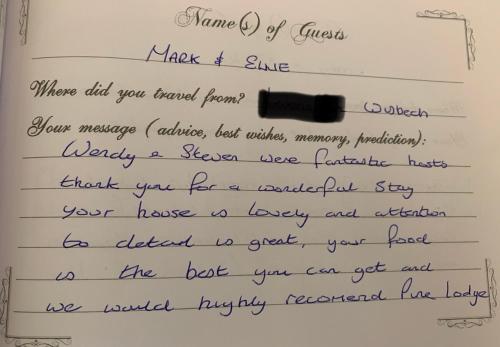 Name(s) of Guests
MARK & ELLIE
Where did you travel from? Wisbech
Your message ( advice, best wishes, memory, prediction):
Wendy & Steven were fantastic hosts
thank you for a wonderful stay
your house is lovely and attention
to detail is great, your food
is the best you can get and
we would highly recomend Pine Lodge